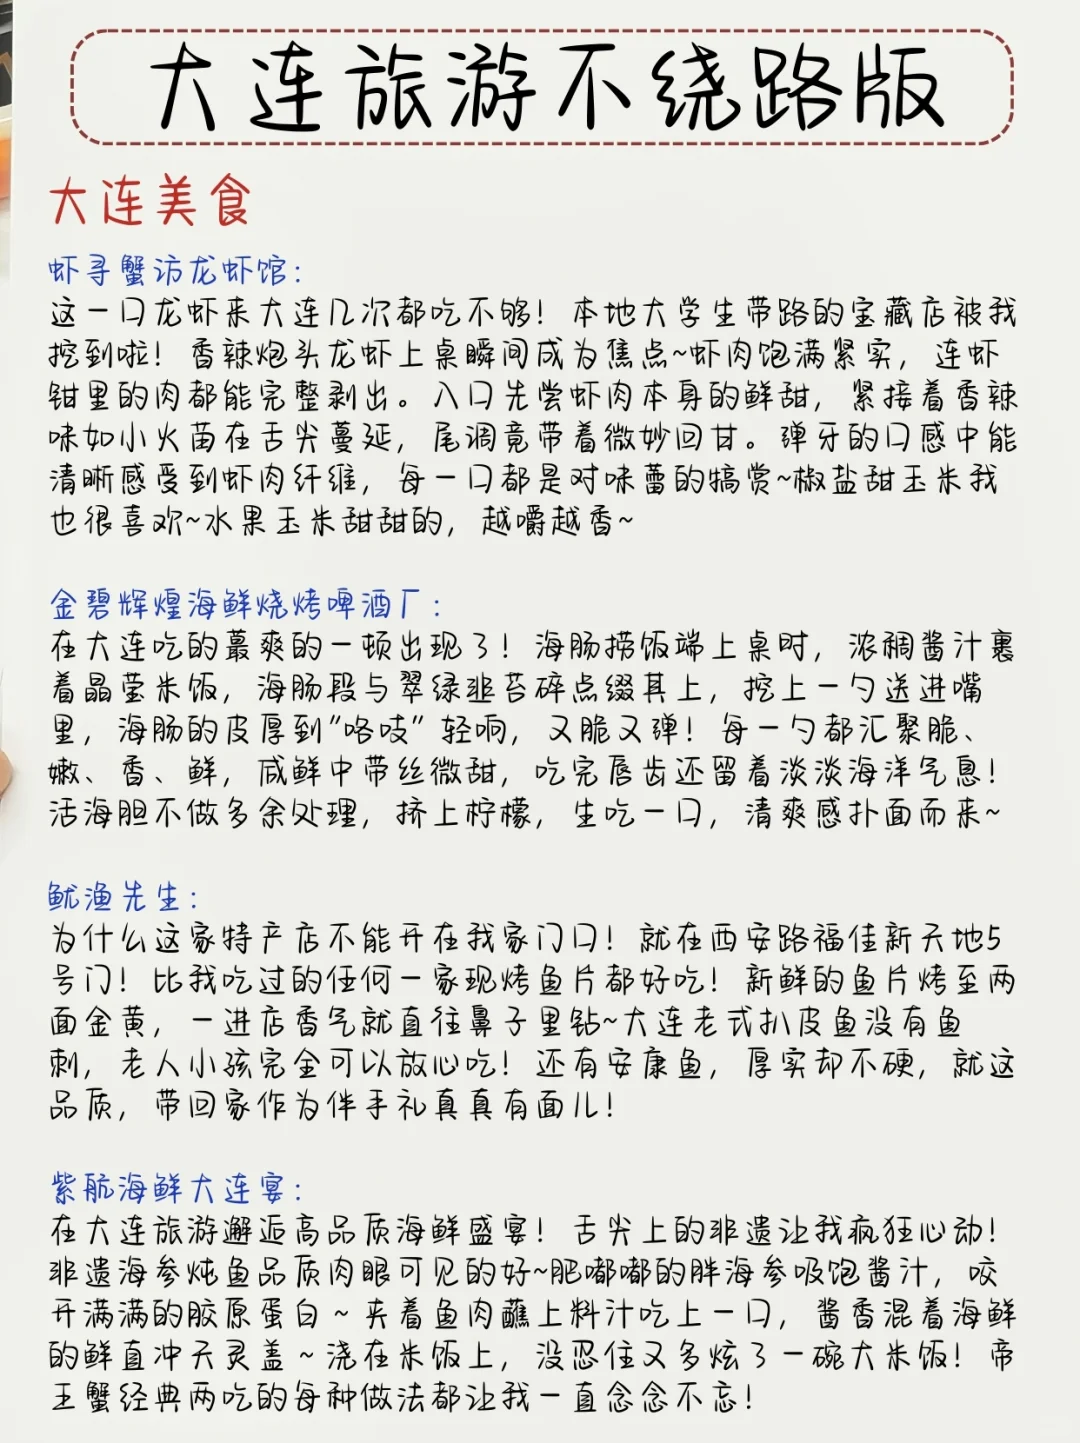 大连旅游不绕路版
大连美食
虾寻蟹访龙虾馆：
这一口龙虾来大连几次都吃不够！本地大学生带路的宝藏店被我
挖到啦！香辣炮头龙虾上桌瞬间成为焦点~虾肉饱满紧实，连虾
钳里的肉都能完整剥出。入口先尝虾肉本身的鲜甜，紧接着香辣
味如小火苗在舌尖蔓延，尾调竟带着微妙回甘。弹牙的口感中能
清晰感受到虾肉纤维，每一口都是对味蕾的犒赏~椒盐甜玉米我
也很喜欢~水果玉米甜甜的，越嚼越香~
金碧辉煌海鲜烧烤啤酒厂：
在大连吃的蕞爽的一顿出现了！海肠捞饭端上桌时，浓稠酱汁裹
着晶莹米饭，海肠段与翠绿韭苔碎点缀其上，挖上一勺送进嘴
里，海肠的皮厚到“咯吱”轻响，又脆又弹！每一勺都汇聚脆、
嫩、香、鲜，咸鲜中带丝微甜，吃完唇齿还留着淡淡海洋气息！
活海胆不做多余处理，挤上柠檬，生吃一口，清爽感扑面而来~
鱿渔先生：
为什么这家特产店不能开在我家门口！就在西安路福佳新天地5
号门！比我吃过的任何一家现烤鱼片都好吃！新鲜的鱼片烤至两
面金黄，一进店香气就直往鼻子里钻~大连老式扒皮鱼没有鱼
刺，老人小孩完全可以放心吃！还有安康鱼，厚实却不硬，就这
品质，带回家作为伴手礼真真有面儿！
紫航海鲜大连宴：
在大连旅游邂逅高品质海鲜盛宴！舌尖上的非遗让我疯狂心动！
非遗海参炖鱼品质肉眼可见的好~肥嘟嘟的胖海参吸饱酱汁，咬
开满满的胶原蛋白~夹着鱼肉蘸上料汁吃上一口，酱香混着海鲜
的鲜直冲天灵盖~浇在米饭上，没忍住又多炫了一碗大米饭！帝
王蟹经典两吃的每种做法都让我一直念念不忘！